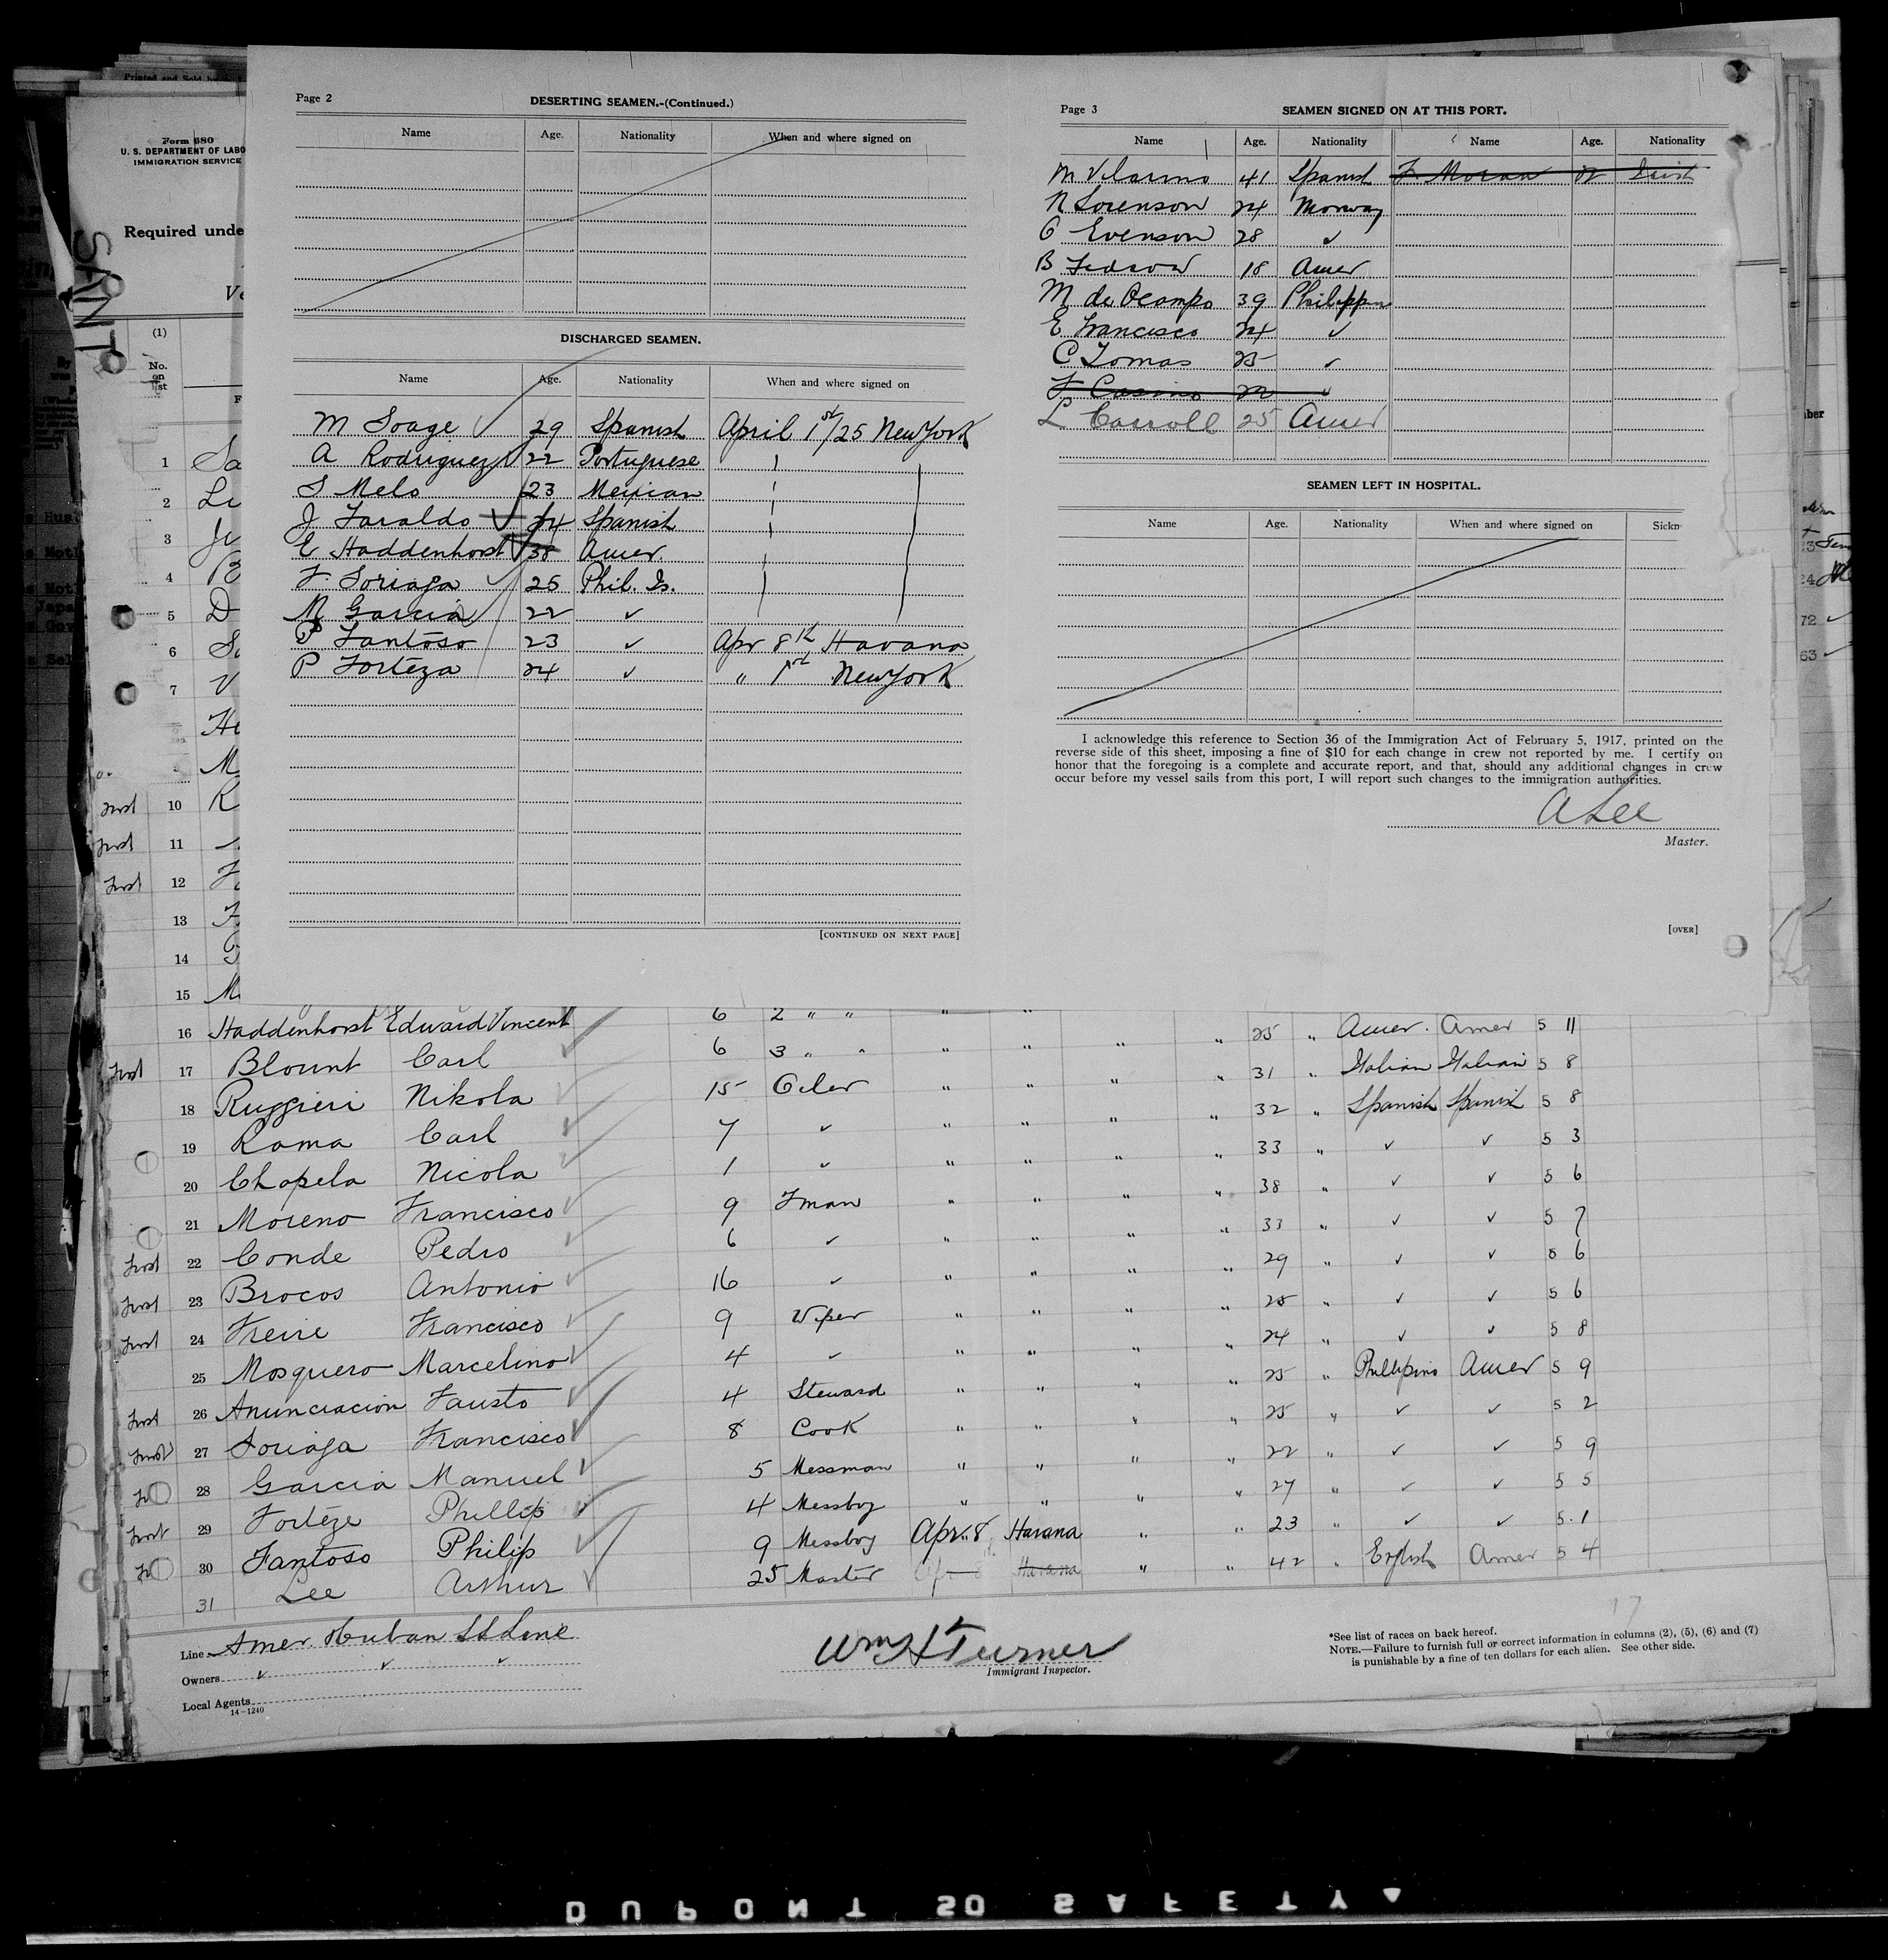 Form 680
U. S. DEPARTMENT OF LABO
IMMIGRATION SERVICE
Required unde
SANT
(1)
No. on list
Page 2
DESERTING SEAMEN.-(Continued.)
Name Age. Nationality When and where signed on
DISCHARGED SEAMEN.
Name Age. Nationality When and where signed on
M Soage 29 Spanish April 1st/25 New York
A Rodriguez 22 Portuguese "
S Melo 23 Mexican "
J Faraldo 24 Spanish "
E Haddenhorst 38 Amer.
F. Soriaga 25 Phil. Is.
M Garcia 22 ✓
P Fantoso 23 ✓ Apr 8th Havana
P Forteza 24 ✓ " 1st New York
[CONTINUED ON NEXT PAGE]
Page 3
SEAMEN SIGNED ON AT THIS PORT.
Name Age. Nationality Name Age. Nationality
M Vilarino 41 Spanish F. Moran Irish
N Sorenson 24 Norway
O Evenson 28 ✓
B 18 Amer
M de Ocampo 39 Philippin
E Francisco 24 ✓
C Tomas 25 ✓
F Casino 22 ✓
L Carroll 25 Amer
SEAMEN LEFT IN HOSPITAL.
Name Age. Nationality When and where signed on Sickn
I acknowledge this reference to Section 36 of the Immigration Act of February 5, 1917, printed on the
reverse side of this sheet, imposing a fine of $10 for each change in crew not reported by me. I certify on
honor that the foregoing is a complete and accurate report, and that, should any additional changes in crew
occur before my vessel sails from this port, I will report such changes to the immigration authorities.
A Lee
Master.
[OVER]
1 Sa
2
3
4 B
5 D
6
7 V
He
M
first 10 R
first 11
first 12
13
14
15 M
16 Haddenhorst Edward Vincent 6 2 " " " "
first 17 Blount Carl 6 3 " " " " " " 25 " Amer. Amer 5 11
18 Ruggieri Nikola 15 Oiler " " " " 31 " Italian Italian 5 8
19 Roma Carl 7 ✓ " " " " 32 " Spanish Spanish 5 8
20 Chapela Nicola 1 ✓ " " " " 33 " ✓ ✓ 5 3
21 Moreno Francisco 9 Fman " " " " 38 " ✓ ✓ 5 6
first 22 Conde Pedro 6 ✓ " " " " 33 " ✓ ✓ 5 7
first 23 Brocos Antonio 16 ✓ " " " " 29 " ✓ ✓ 5 6
first 24 Freire Francisco 9 Wiper " " " " 25 " ✓ ✓ 5 6
25 Mosquero Marcelino 4 ✓ " " " " 24 " ✓ ✓ 5 8
first 26 Anunciacion Fausto 4 Steward " " " " 25 " Phillipino Amer 5 9
first 27 Soriaga Francisco 8 Cook " " " " 25 " ✓ ✓ 5 2
28 Garcia Manuel 5 Messman " " " " 22 " ✓ ✓ 5 9
first 29 Forteze Phillip 4 Messboy " " " " 27 " ✓ ✓ 5 5
30 Fantoso Philip 9 Messboy Apr. 8 Havana " " 23 " ✓ ✓ 5.1
31 Lee Arthur 25 Master Havana " " 42 " English Amer 5 4
Line Amer & Cuban SS Line
Owners ✓ ✓ ✓
Local Agents
14-1240
Wm H Turner
Immigrant Inspector.
*See list of races on back hereof.
NOTE.—Failure to furnish full or correct information in columns (2), (5), (6) and (7)
is punishable by a fine of ten dollars for each alien. See other side.
17
DUPONT SO SAFETY